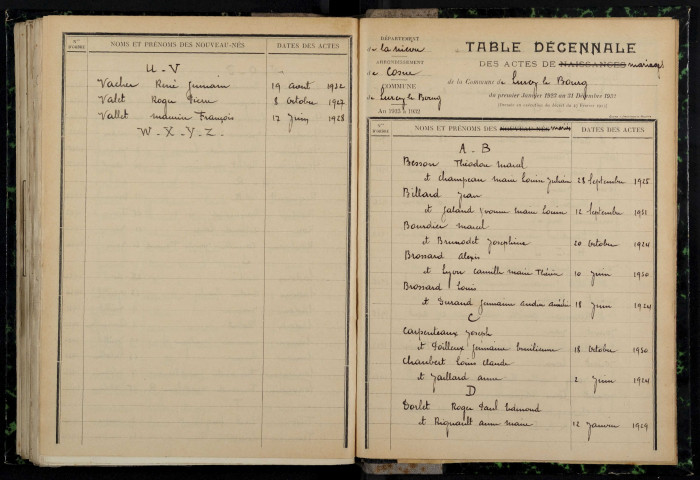 Nos D'ORDRE NOMS ET PRÉNOMS DES NOUVEAU-NÉS DATES DES ACTES
U - V
Vacher René Germain 19 aout 1932
Valet Roger Pierre 8 Octobre 1927
Vallet Maurice François 17 Juin 1928
W - X - Y - Z -
DÉPARTEMENT
de la nièvre
ARRONDISSEMENT
de Cosne
COMMUNE
de Lurcy le Bourg
An 1923 à 1932
TABLE DÉCENNALE
DES ACTES DE NAISSANCES mariages
de la Commune de Lurcy le Bourg
du premier Janvier 1923 au 31 Décembre 1932
Nos D'ORDRE NOMS ET PRÉNOMS DES NOUVEAU-NÉS DATES DES ACTES
A - B
Besson Théodore Marcel
et Champeau Marie Louise Juliene 28 Septembre 1925
Billard Jean
et Galand Yvonne Marie Louise 12 Septembre 1931
Bourdier Marcel
et Brunodet Josephine 20 Octobre 1924
Brossard Alexis
et Lyon Camille Marie Thérèse 10 Juin 1930
Brossard Louis
et Durand Germaine 18 Juin 1924
C
Carpenteaux Joseph
et Germaine Emilienne 18 Octobre 1930
Chaubert Louis Claude
et Jaillard Anne 2 Juin 1924
D
Dorlet Roger Paul Edmond
et Rignault Anne Marie 12 Janvier 1929